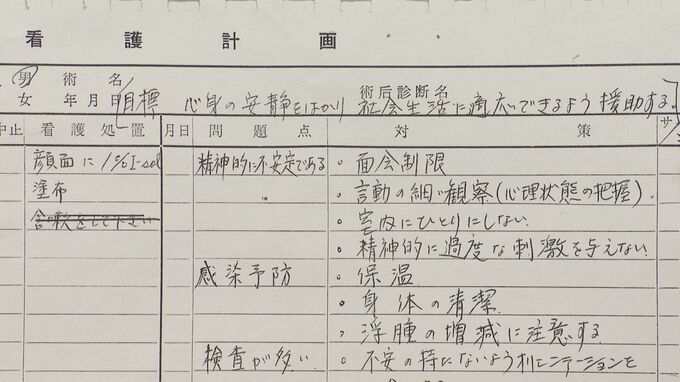 看護計画
男 術名 術后診断名
女 年月日 目標 心身の安静をはかり 社会生活に適応できるよう援助する。
中止 看護処置 月日 問題点 対策 サ
顔面に 精神的に不安定である ・面会制限
塗布 ・言動の細い観察(心理状態の把握).
含嗽をして下さい ・室内にひとりにしない.
・精神的に過度な刺激を与えない.
感染予防 ・保温
・身体の清潔.
・浮腫の増減に注意する
検査が多い. ・不安の持たないよう オリエンテーションを